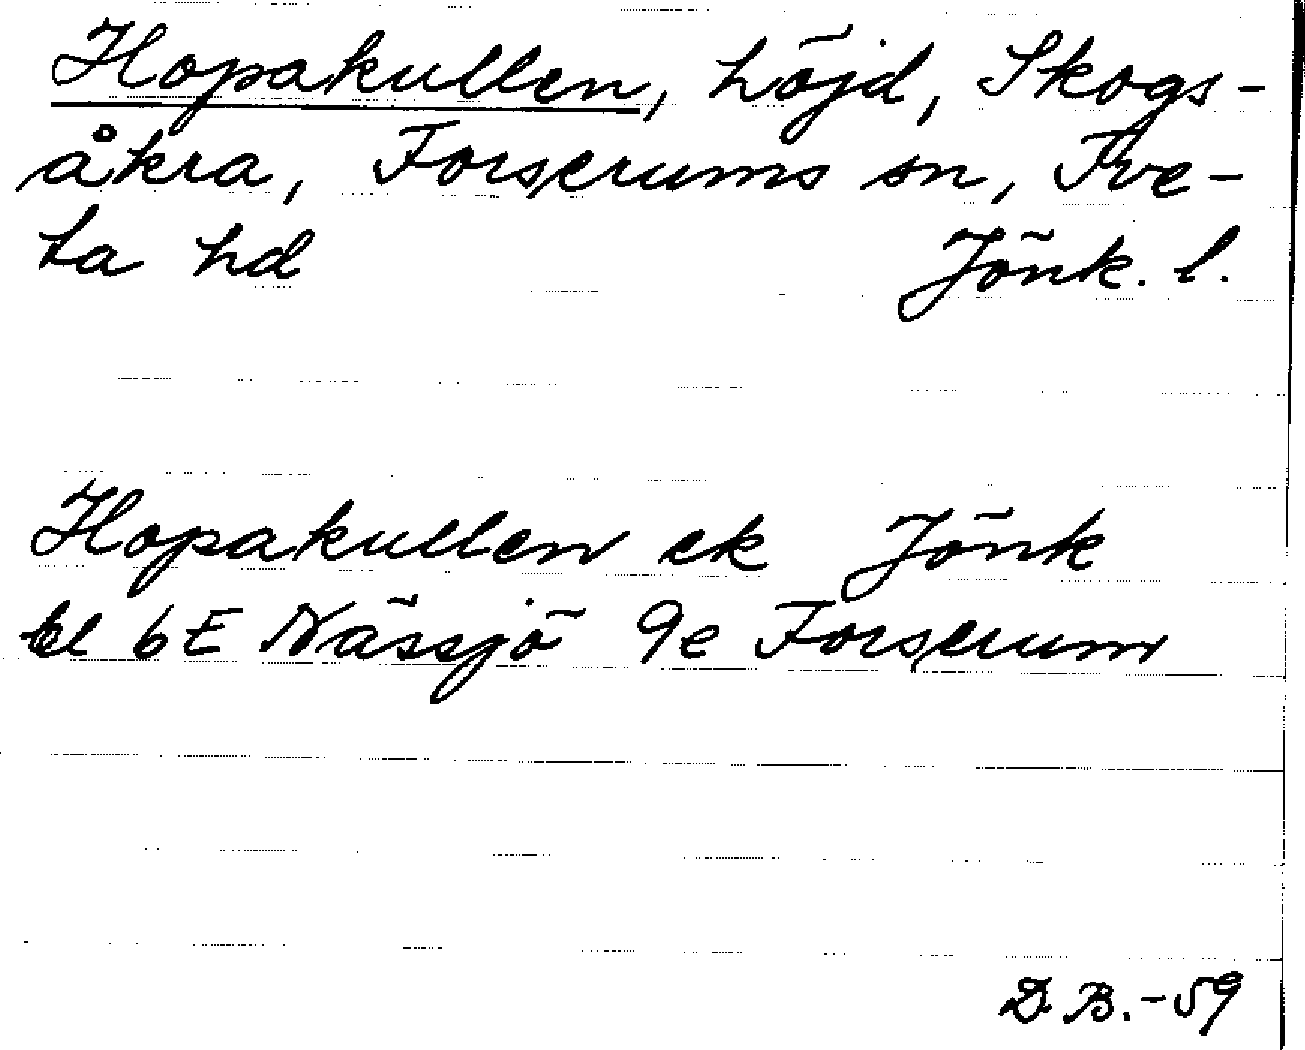 Hopakullen, höjd, Skogs-
åkra, Forserums sn, Tve-
ta hd Jönk. l.
Hopakullen ek Jönk
bl 6E Nässjö 9e Forserum
D. B. -59